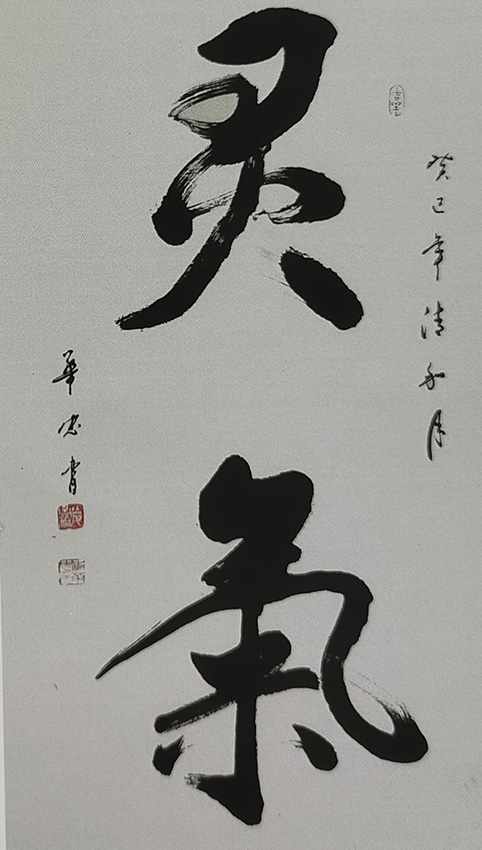 癸巳年清和月
灵氣
華忠